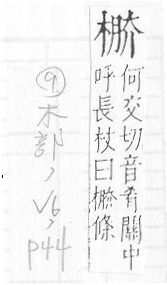 何交切音肴關中
呼長杖曰條
⑨木部, V6,
p44